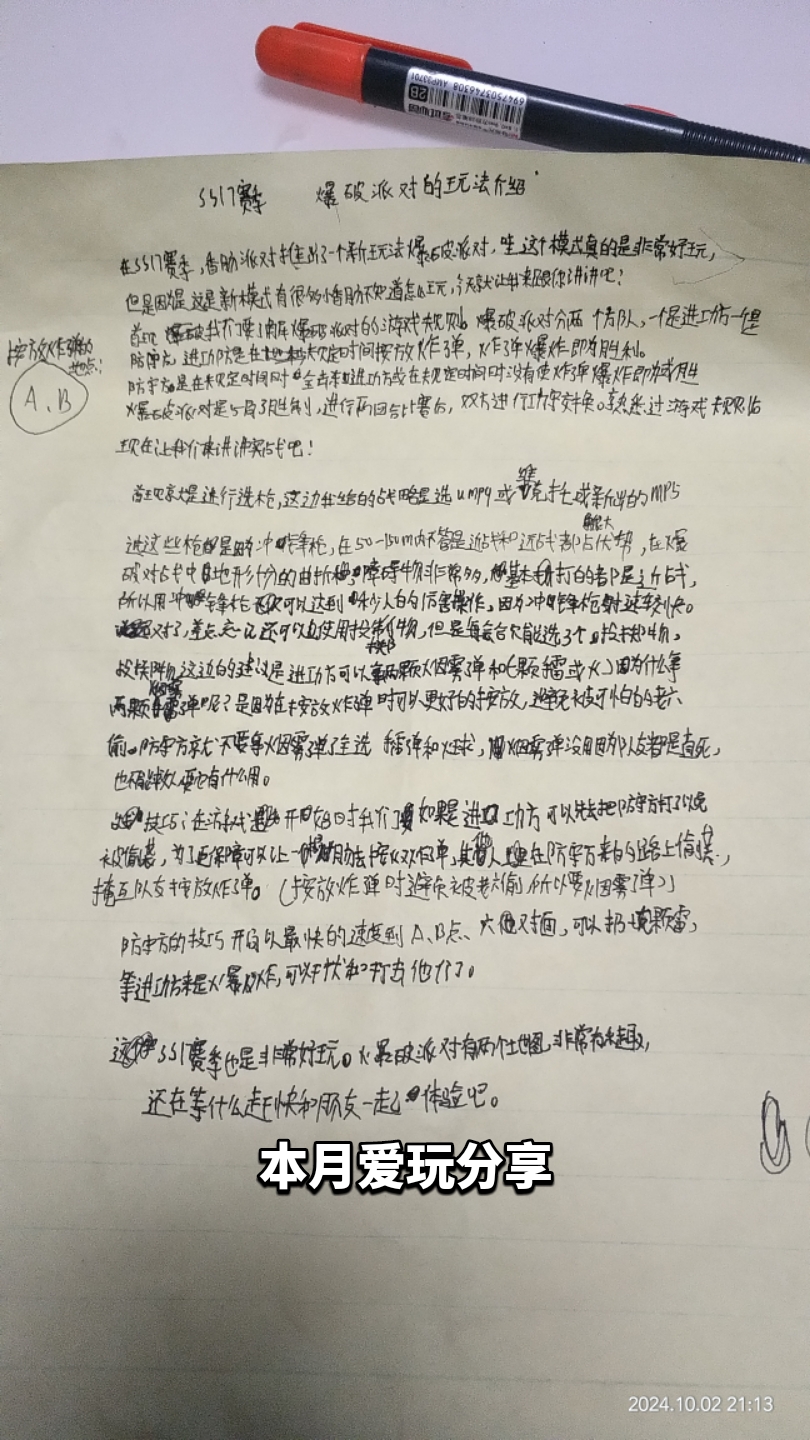 6947503746308
AMP33701
2B
SS17赛季 爆破派对的玩法介绍
在SS17赛季,香肠派对推出了一个新玩法爆破派对,哇这个模式真的是非常好玩,
但是因是这是新模式有很多小香肠不知道怎么玩,今天就让我来跟你讲讲吧!
首现 我们要了解爆破派对的游戏规则。爆破派对分两个方队,一个是进工方一个是
防守方,进工方是在规定时间按放炸弹,炸弹爆炸即为胜利。
按放炸弹的
地点:
A、B
防守方是在规定时间内 全击进功方或在规定时间内没有使炸弹爆炸即为或胜
爆破派对是5局3胜制,进行两回合比赛后,双方进行工守对换。熟悉过游戏规则后
现在让我们来讲讲实占戈吧!
首现是进行选枪,这边我给的战略是选ump9或维克托或新出的MP5
选这些枪是因为冲峰枪,在50-150m内不管是近战和远战都占优势,在爆
破对战中地形十分的曲折,障碍物非常多,基本打的都是近战,
所以用冲锋枪可以达到 少人的厉害操作,因为冲锋枪射速较快。
对了,差点忘记还可以使用投掷物,但是每回合只能选3个投掷物,
投掷物这边的建议是进工方可以拿两颗烟雾弹和一颗雷或火)因为什么拿
两颗烟雾弹呢?是因为在按放炸弹时可以更好的按放,避免被可怕的老六
偷。防守方就不要拿烟雾弹了全选 雷弹和火球,烟雾弹没用因为队友都是直死,
也没什么用。
技巧:在游戏开始时我们如果是进工方可以先去把防守方打了以免
被偷袭,为了保障可以让一个香肠去按放炸弹,其他人在防守方来的路上偷袭,
掩互队友按放炸弹。(按放炸弹时避免被老六偷所以要烟雾弹)
防守方的技巧 开局以最快的速度到A、B点、 可以扔颗雷,
等进功方来是火爆炸,可以干扰和打击他们。
SS17赛季也是非常好玩。爆破派对有两个地图,非常有趣,
还在等什么赶快和朋友一起体验吧。
本月爱玩分享
2024.10.02 21:13